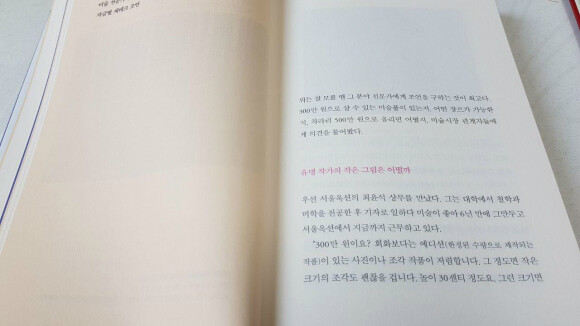 미술 전문가
자금별 재테크 조언
뭐든 잘 모를 땐 그 분야 전문가에게 조언을 구하는 것이 최고다.
300만 원으로 살 수 있는 미술품이 있는지, 어떤 장르가 가능한
지, 차라리 500만 원으로 올리면 어떨지, 미술시장 관계자들에
게 의견을 물어봤다.
유명 작가의 작은 그림은 어떨까
우선 서울옥션의 최윤석 상무를 만났다. 그는 대학에서 철학과
미학을 전공한 후 기자로 일하다 미술이 좋아 6년 만에 그만두고
서울옥션에서 지금까지 근무하고 있다.
"300만 원이요? 회화보다는 에디션(한정된 수량으로 제작되는
작품)이 있는 사진이나 조각 작품이 저렴합니다. 그 정도면 작은
크기의 조각도 괜찮을 겁니다. 높이 30센티 정도요. 그런 크기면